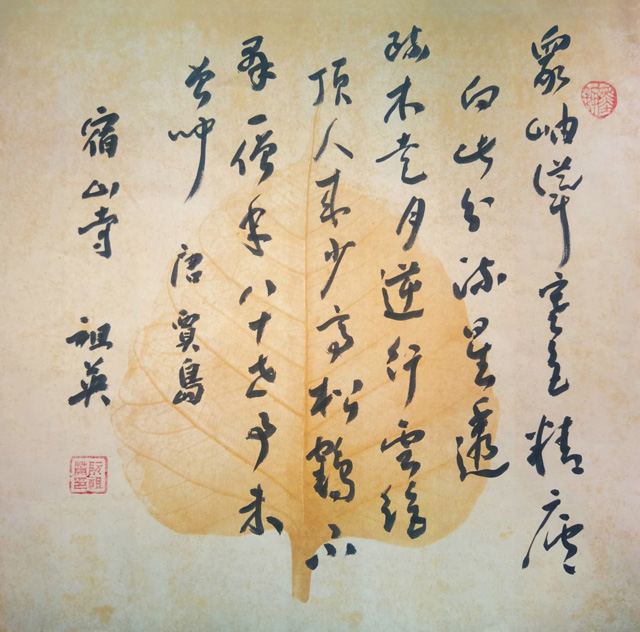 眾岫聳寒色精廬
向此分流星透
疏木走月逆行雲絕
頂人來少高松鶴不
羣一僧年八十世事未
曾聞
唐賈島
宿山寺
祖英